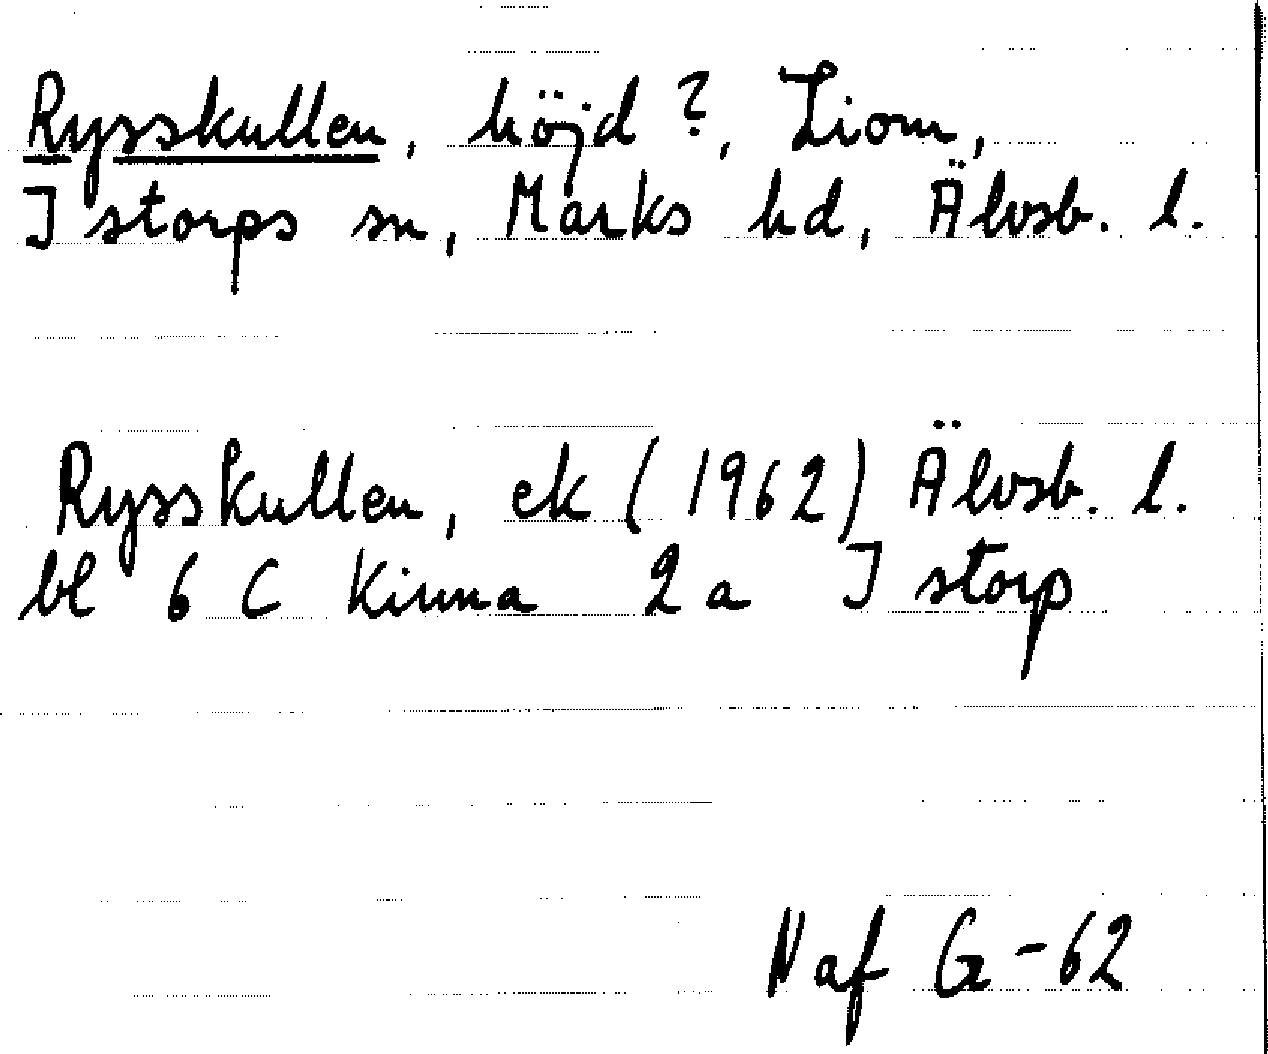 Rysskullen, höjd ?, Liom,
Istorps sn, Marks hd, Älvsb. l.
Rysskullen, ek (1962) Älvsb. l.
bl 6 C Kinna 2a Istorp
N af G-62